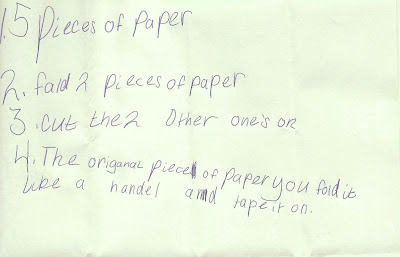 1. 5 pieces of paper
2. fald 2 pieces of paper
3. cut the 2 Other one's or
4. The origanal piece of paper you fold it
like a handel and tape it on.